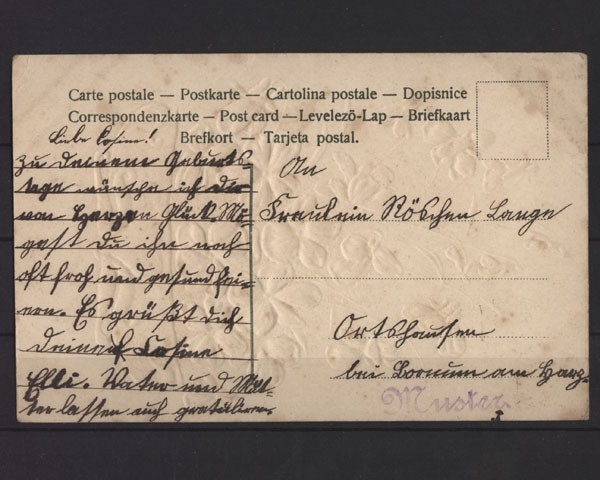 Carte postale — Postkarte — Cartolina postale — Dopisnice
Correspondenzkarte — Post card — Levelezö-Lap — Briefkaart
Brefkort — Tarjeta postal.
Liebe Cosine!
Zu deinem Geburts-
tage wünsche ich dir
von Herzen Glück. Mö-
gest du ihn noch
oft froh und gesund fei-
ern. Es grüßt dich
deine Cosine
Elli. Vater und Mut-
ter lassen auch gratulieren.
An
Fräulein Röschen Lange
Ortshausen
bei Bornum am Harz.
Muster